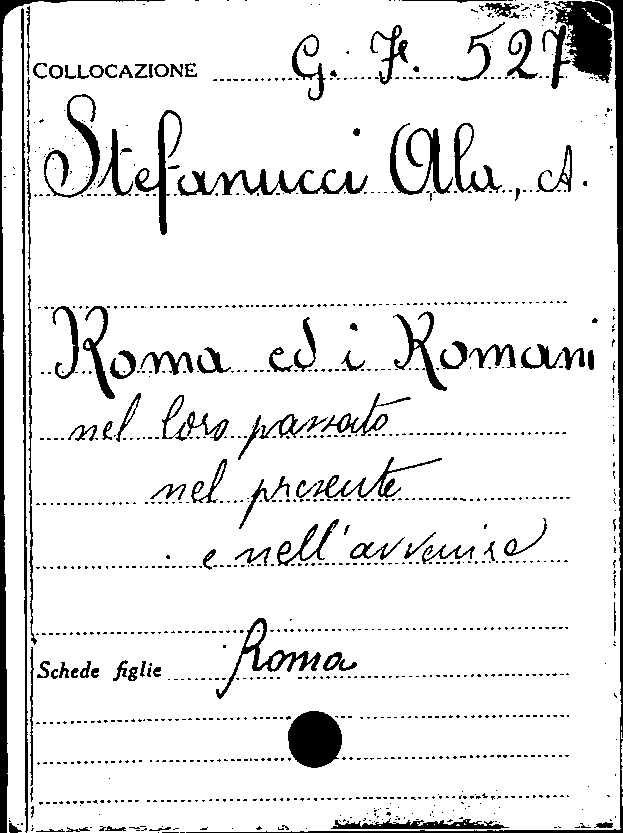 COLLOCAZIONE G. F. 527
Stefanucci Ala, A.
Roma ed i Romani
nel loro passato
nel presente
e nell'avvenire
Schede figlie Roma